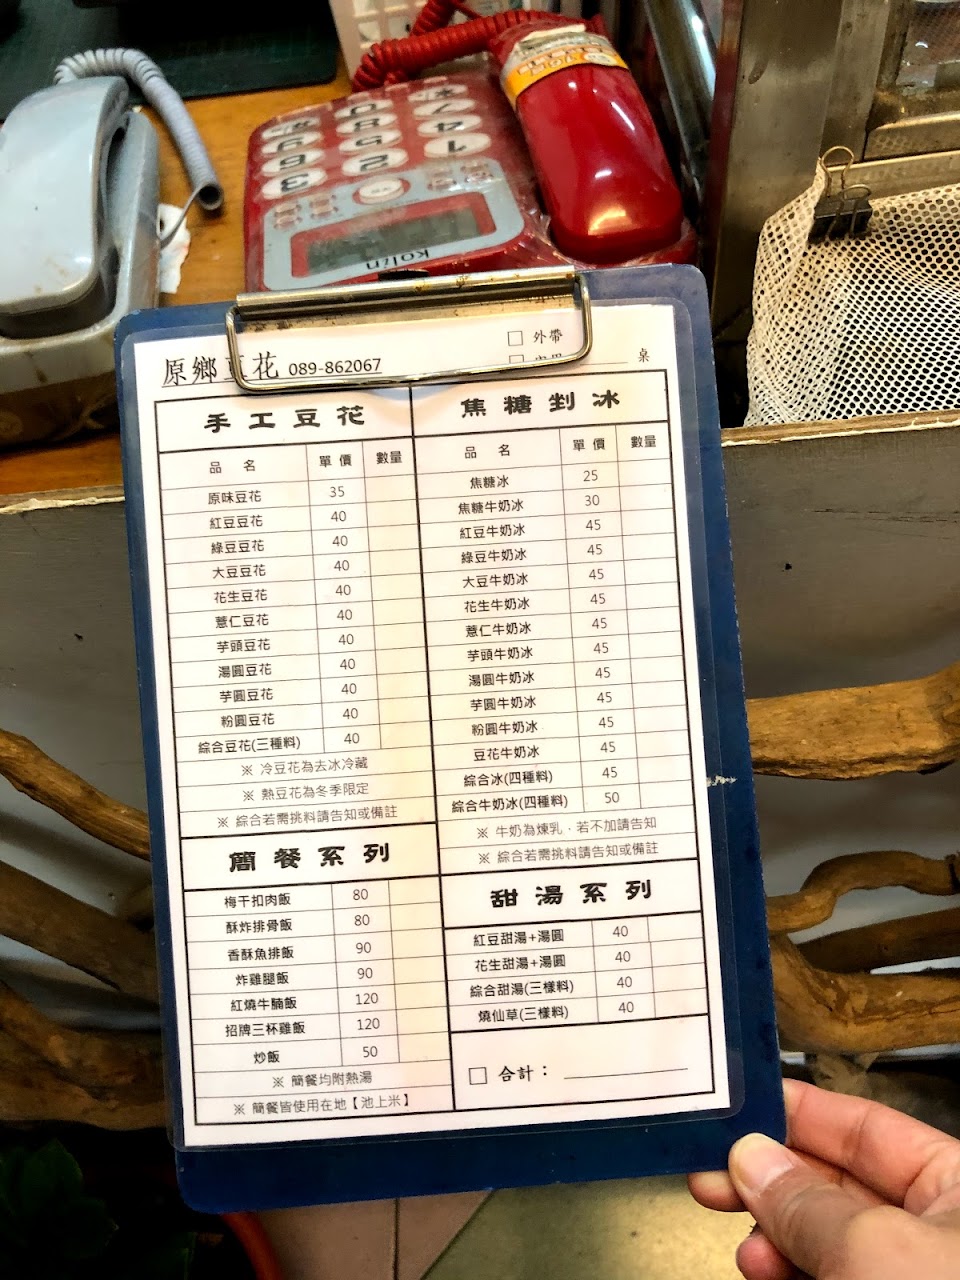 kolin
原鄉豆花 089-862067
□ 外帶
桌
手工豆花
品 名 單 價 數量
原味豆花 35
紅豆豆花 40
綠豆豆花 40
大豆豆花 40
花生豆花 40
薏仁豆花 40
芋頭豆花 40
湯圓豆花 40
芋圓豆花 40
粉圓豆花 40
綜合豆花(三種料) 40
※ 冷豆花為去冰冷藏
※ 熱豆花為冬季限定
※ 綜合若需挑料請告知或備註
簡餐系列
梅干扣肉飯 80
酥炸排骨飯 80
香酥魚排飯 90
炸雞腿飯 90
紅燒牛腩飯 120
招牌三杯雞飯 120
炒飯 50
※ 簡餐均附熱湯
※ 簡餐皆使用在地【池上米】
焦糖剉冰
品 名 單 價 數量
焦糖冰 25
焦糖牛奶冰 30
紅豆牛奶冰 45
綠豆牛奶冰 45
大豆牛奶冰 45
花生牛奶冰 45
薏仁牛奶冰 45
芋頭牛奶冰 45
湯圓牛奶冰 45
芋圓牛奶冰 45
粉圓牛奶冰 45
豆花牛奶冰 45
綜合冰(四種料) 45
綜合牛奶冰(四種料) 50
※ 牛奶為煉乳．若不加請告知
※ 綜合若需挑料請告知或備註
甜湯系列
紅豆甜湯+湯圓 40
花生甜湯+湯圓 40
綜合甜湯(三樣料) 40
燒仙草(三樣料) 40
□ 合計：